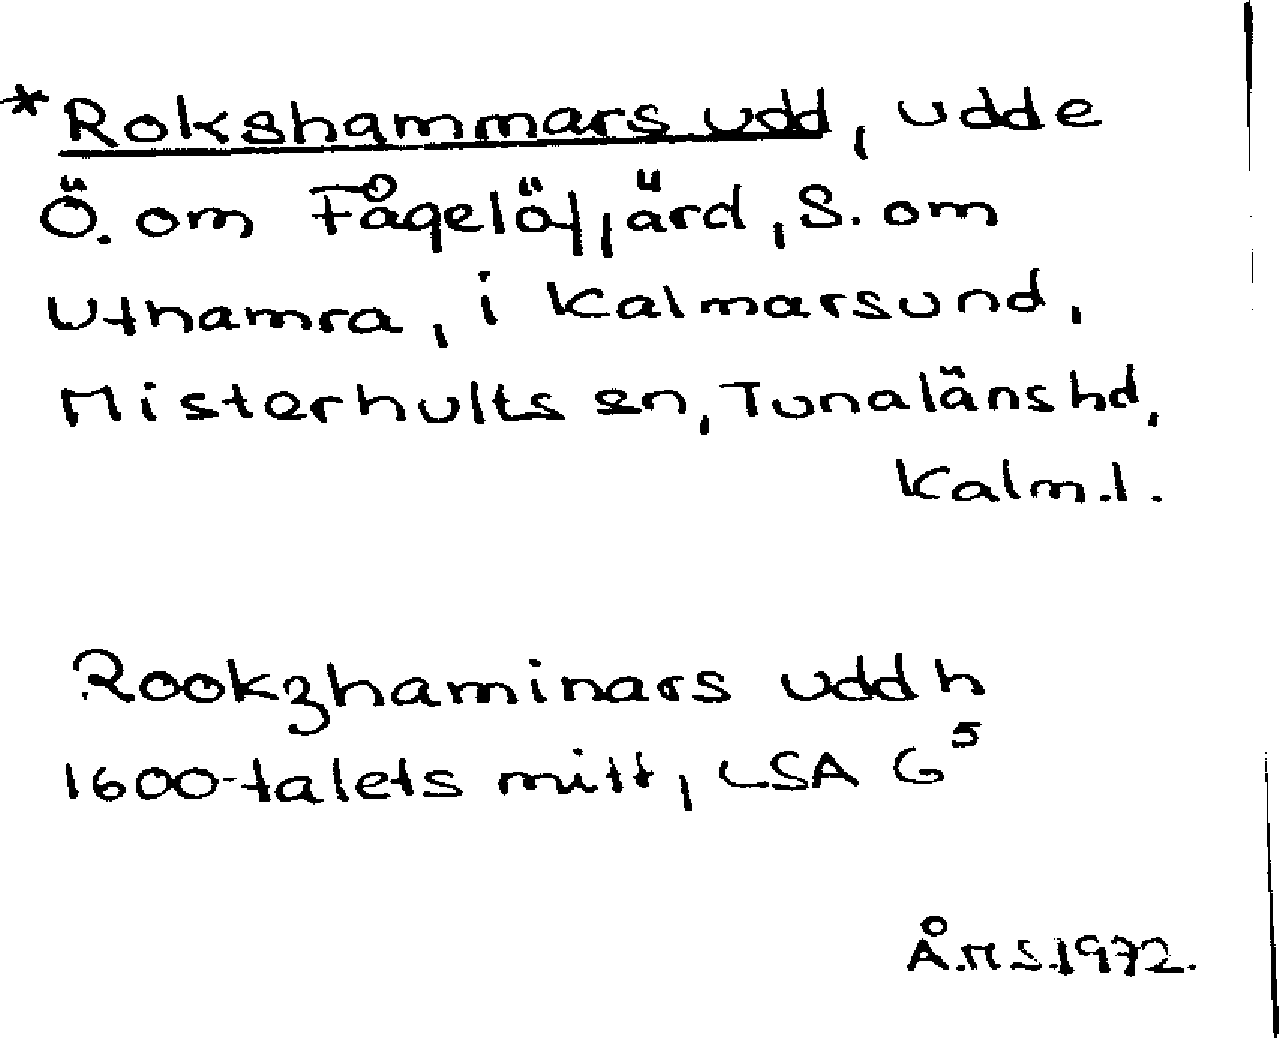 *Rokshammars udd, udde
Ö. om Fågelöfjärd, S. om
Uthamra, i Kalmarsund,
Misterhults sn, Tunaläns hd,
Kalm.l.
Rookzhaminars uddh
1600-talets mitt, LSA G⁵
Å.M S.1972.